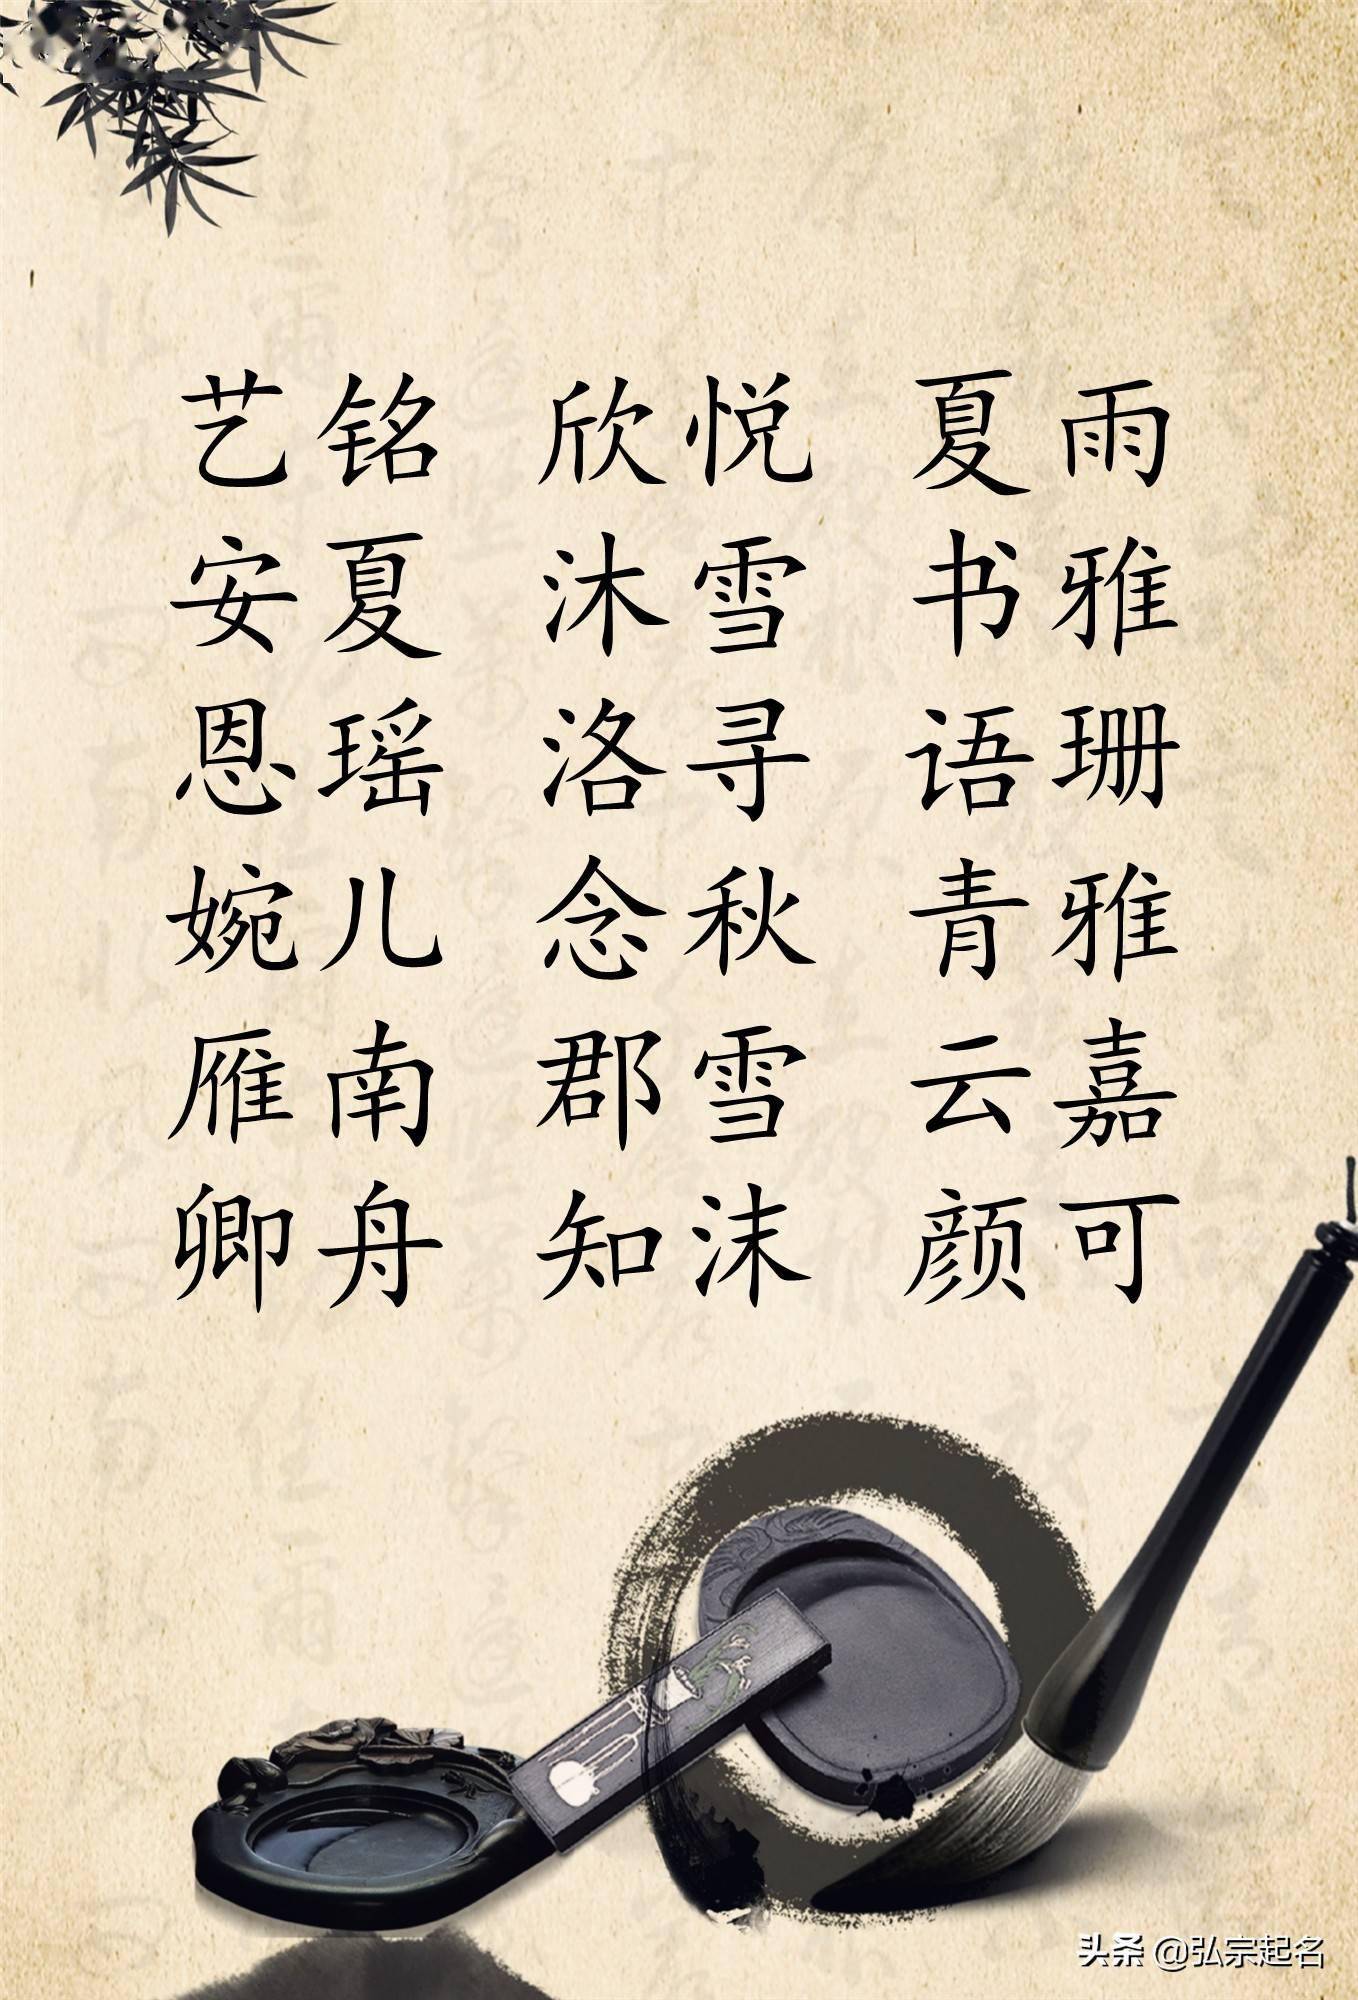 艺铭 欣悦 夏雨
安夏 沐雪 书雅
恩瑶 洛寻 语珊
婉儿 念秋 青雅
雁南 郡雪 云嘉
卿舟 知沫 颜可
头条 @弘宗起名